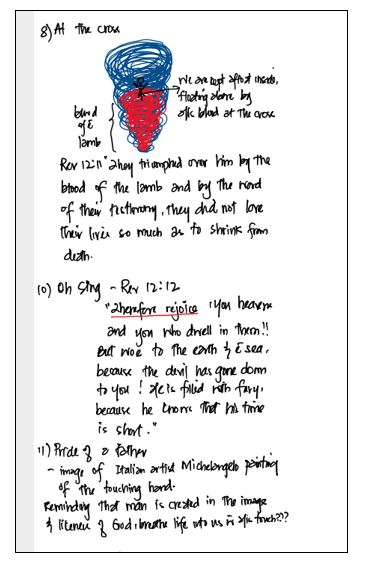 8) At the cross
we are kept afloat inside,
floating above by
His blood at the cross
blood
of
lamb
Rev 12:11 "They triumphed over him by the
blood of the lamb and by the word
of their testimony, they did not love
their lives so much as to shrink from
death.
10) Oh Sing - Rev 12:12
"Therefore rejoice, you heavens
and you who dwell in them!!
But woe to the earth & sea,
because the devil has gone down
to you! He is filled with fury,
because he knows that his time
is short."
11) Pride of a father
- image of Italian artist Michelangelo painting
of the touching hand.
Reminding that man is created in the image
& likeness of God, breathe life into us in His touch???